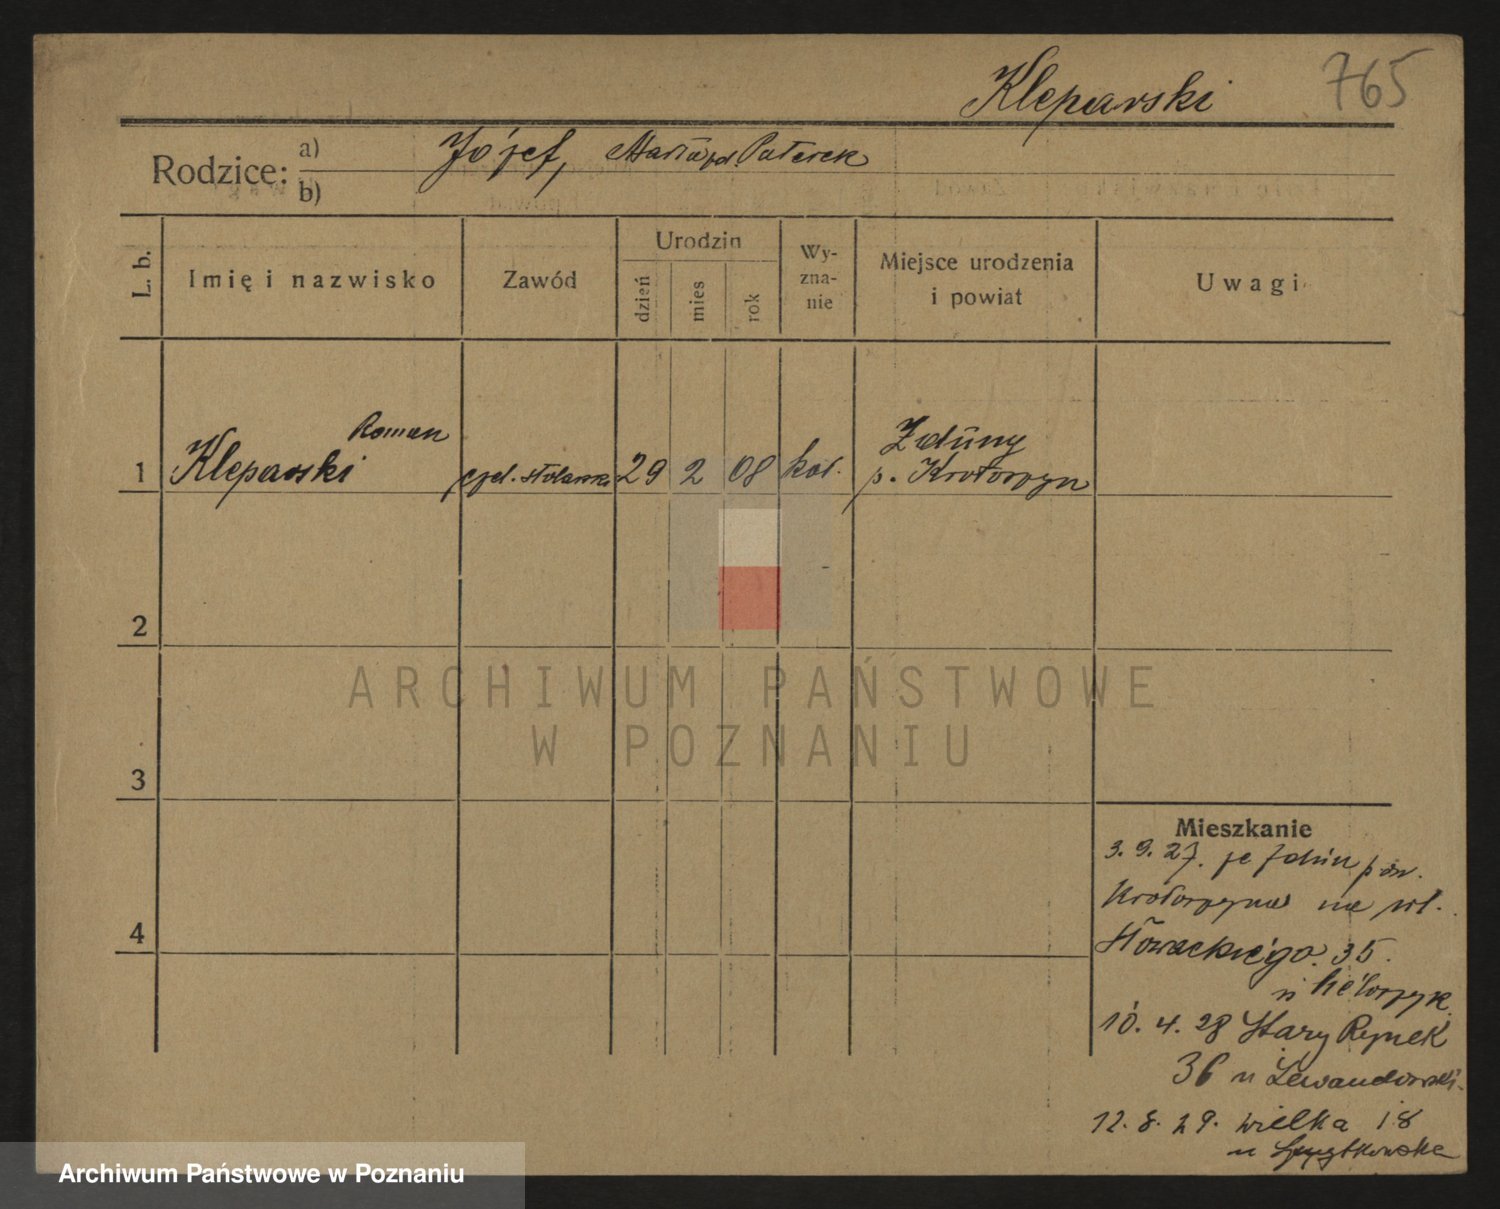 Kleparski 765
Rodzice: a) Józef, Maria Paterek
b)
L. b. Imię i nazwisko Zawód Urodzin dzień mies rok Wy-zna-nie Miejsce urodzenia i powiat Uwagi
Roman
1 Kleparski czel. stolarski 29 2 08 kat. Zduny
p. Krotoszyn
2
ARCHIWUM PAŃSTWOWE
W POZNANIU
3
Mieszkanie
3. 9. 27. ze Zdun pow.
Krotoszyna na ul.
4
Słowackiego 35.
10. 4. 28 Stary Rynek
36 u Lewandowski
12. 8. 29. Wielka 18
u
Archiwum Państwowe w Poznaniu